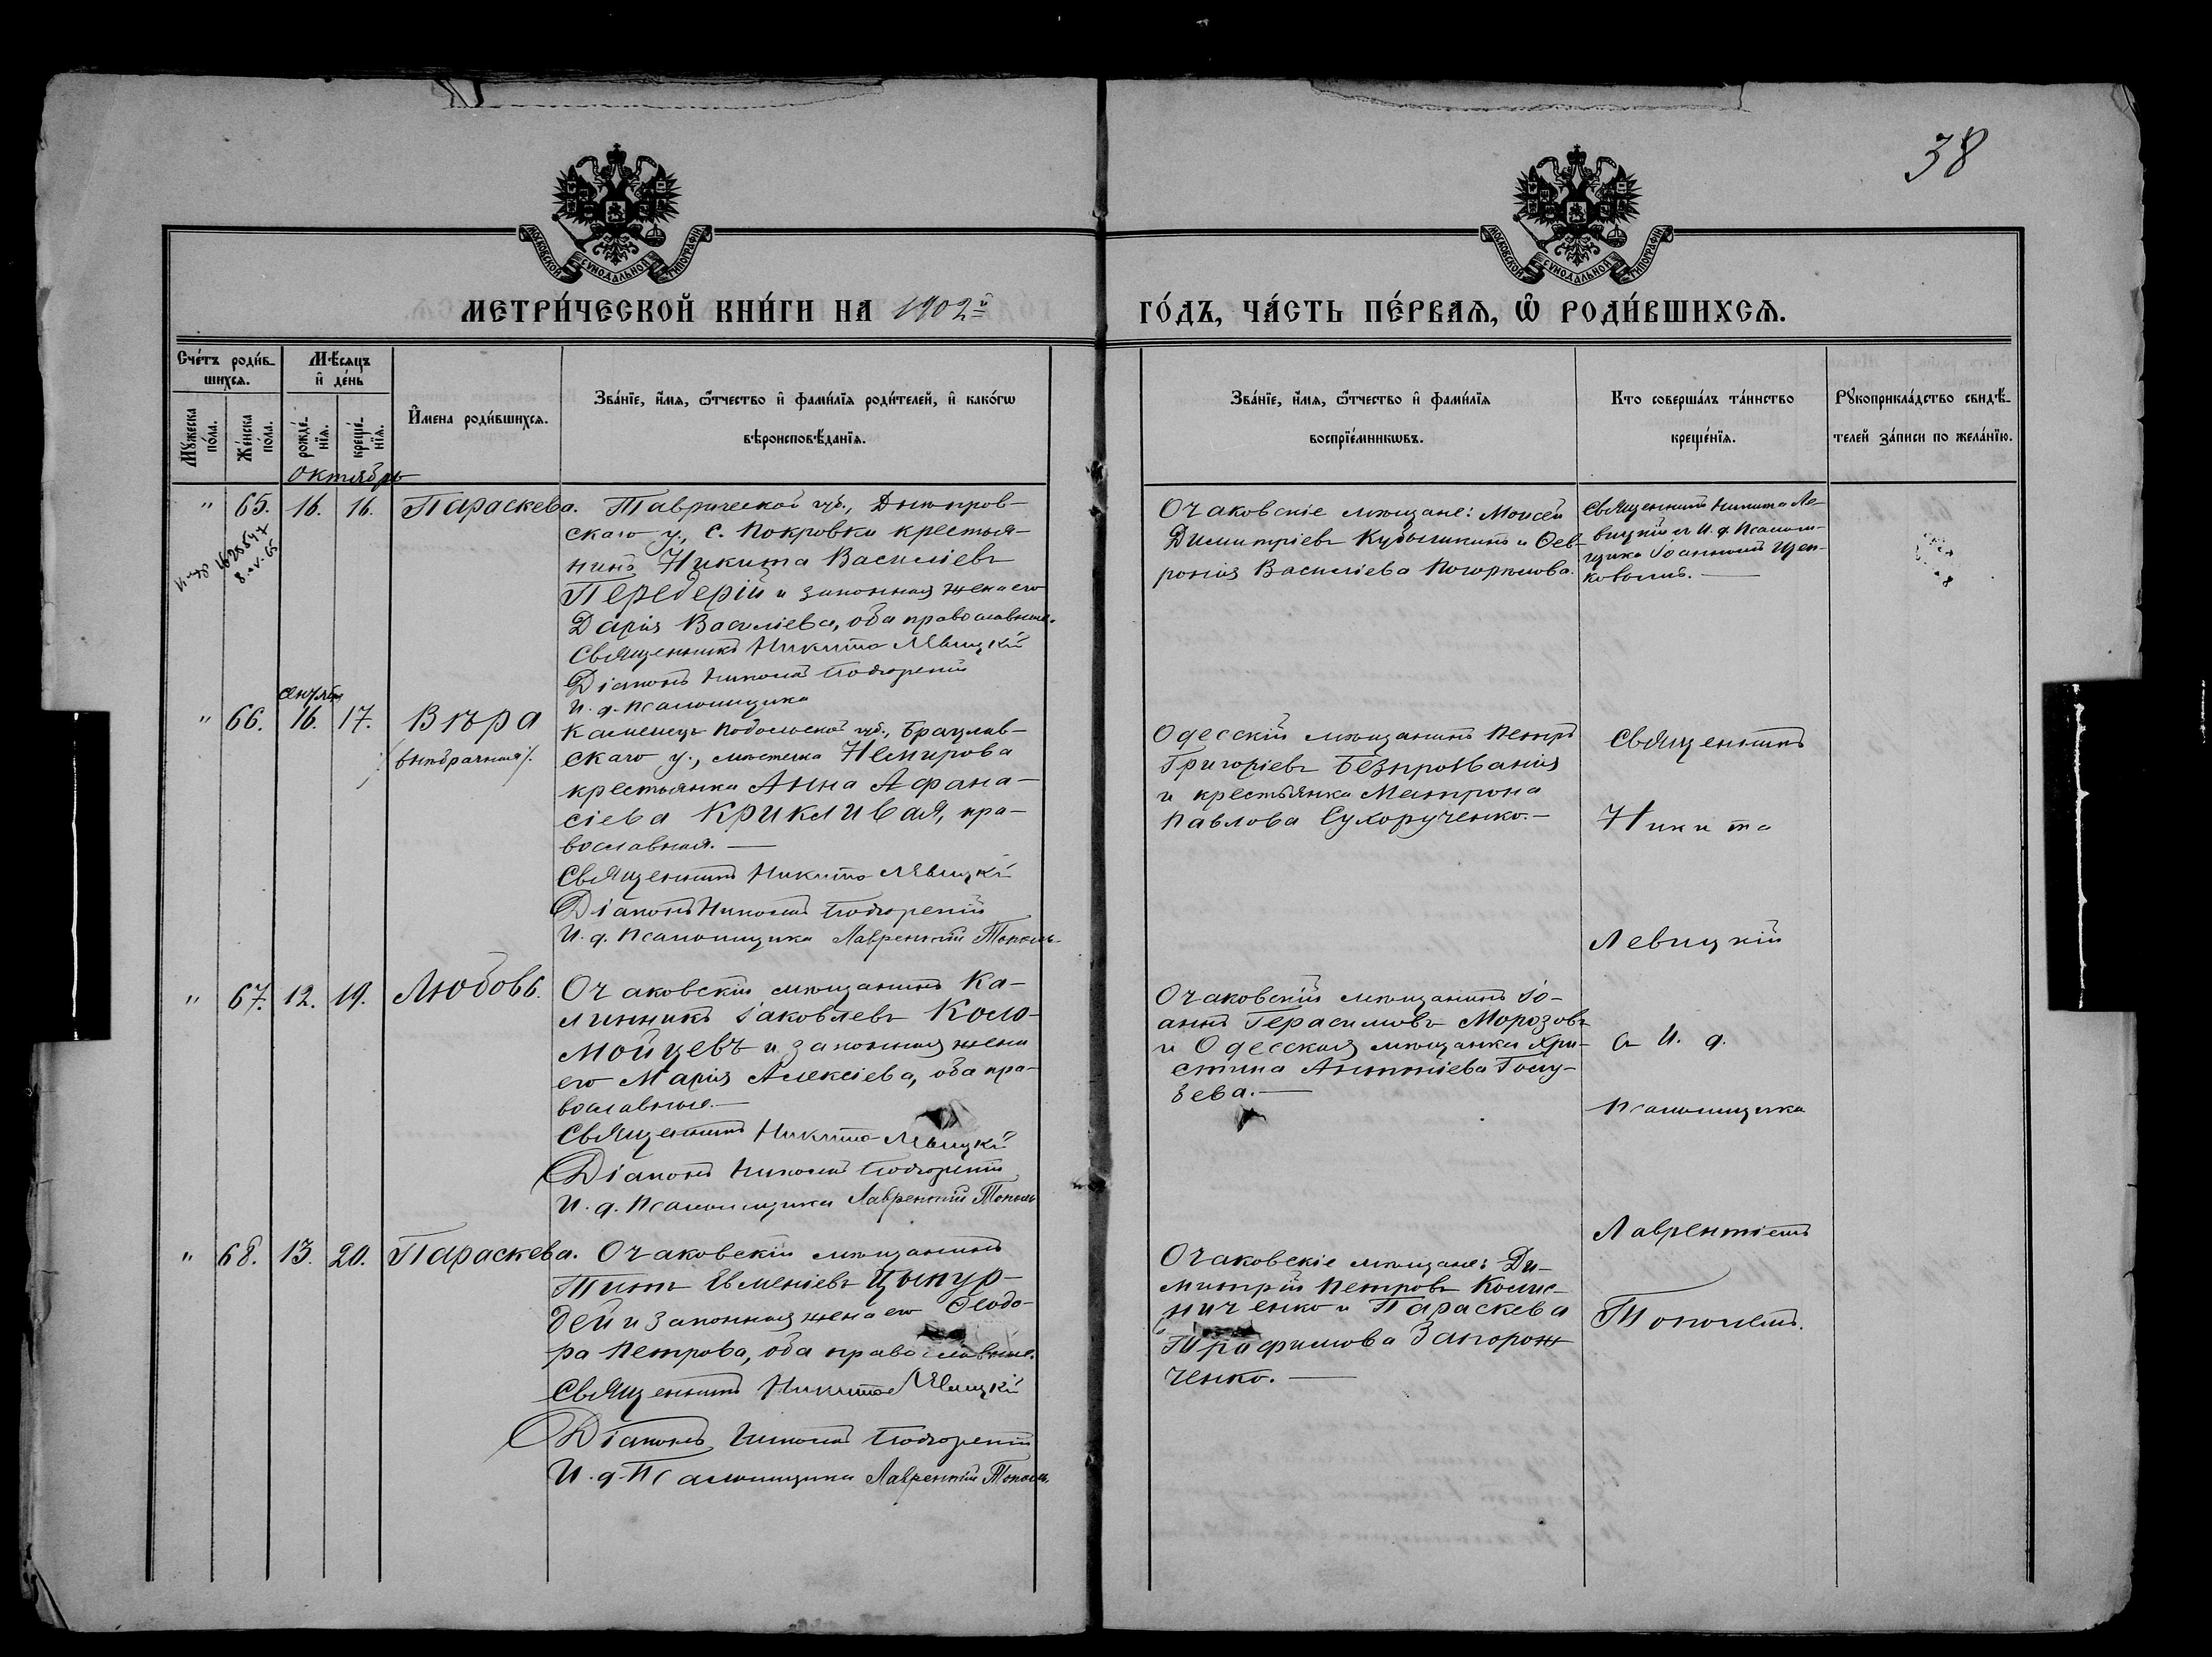 38
МОСКОВСКОЙ СѴНОДАЛЬНОЙ ТИПОГРАФІИ
МОСКОВСКОЙ СѴНОДАЛЬНОЙ ТИПОГРАФІИ
МЕТРИ́ЧЕСКОЙ КНИ́ГИ НА 1902й
ГО́ДЪ, ЧА́СТЬ ПЕ́РВАѦ, Ѽ РОДИ́ВШИХСѦ.
Сче́тъ роди́в-
шихсѧ.
Мꙋжеска по́ла.
Же́нска по́ла.
Мѣсѧцъ
и҆ де́нь
рожде́-
нїѧ.
креще́-
нїѧ.
И҆мена роди́вшихсѧ.
Зва́нїе, и҆́мѧ, ѻ҆́тчество и҆ фами́лїѧ роди́телей, и҆ како́гѡ
вѣроисповѣ́данїѧ.
Зва́нїе, и҆́мѧ, ѻ҆́тчество и҆ фами́лїѧ
воспрїе́мникѡвъ.
Кто соверша́лъ та́инство
креще́нїѧ.
Рꙋкоприкла́дство свидѣ́-
телей за́писи по жела́нїю.
Октябрь
" 65. 16. 16. Параскева.
8-V-65
Таврической губ., Днѣпров-
скаго у., с. Покровки крестья-
нинъ Никита Василіевъ
Передерій и законная жена его
Дарія Василіева, оба православные.
Священникъ Никита Левицкій
Діаконъ Николай
И. д. псаломщика
Очаковскіе мѣщане: Моисей
Димитріевъ и Фев-
ронія Василіева Погорѣлова.
Священникъ Никита Ле-
вицкій съ И. д. Псалом-
щика Іоанномъ
ковымъ.
сентябрь
" 66. 16. 17. Вѣра
/внѣбрачная/.
Каменецъ Подольской губ., Брацлав-
скаго у., мѣстечка Немирова
крестьянка Анна Афана-
сіева Крикливая, пра-
вославная.
Священникъ Никита Левицкій
Діаконъ Николай
И. д. псаломщика Лаврентій Тополь
Одесскій мѣщанинъ Петръ
Григоріевъ Безпрозванія
и крестьянка Матрона
Павлова Сухорученко.
Священникъ
Никита
Левицкій
съ И. д.
псаломщика
Лаврентіемъ
Тополемъ.
" 67. 12. 19. Любовь.
Очаковскій мѣщанинъ Ка-
линникъ Іаковлевъ Коло-
мойцевъ и законная жена
его Марія Алексіева, оба пра-
вославные.
Священникъ Никита Левицкій
Діаконъ Николай
И. д. Псаломщика Лаврентій Тополь
Очаковскій мѣщанинъ Іо-
аннъ Герасимовъ Морозовъ
и Одесская мѣщанка Хри-
стина Антоніева Голу-
бева.
" 68. 13. 20. Параскева.
Очаковскій мѣщанинъ
Титъ Евменіевъ Цыпур-
дей и законная жена его Ѳеодо-
ра Петрова, оба православные.
Священникъ Никита Левицкій
Діаконъ Николай
И. д. Псаломщика Лаврентій Тополь
Очаковскіе мѣщане: Ди-
митрій Петровъ Колис-
ниченко и Параскева
Трофимова Запорож
ченко.